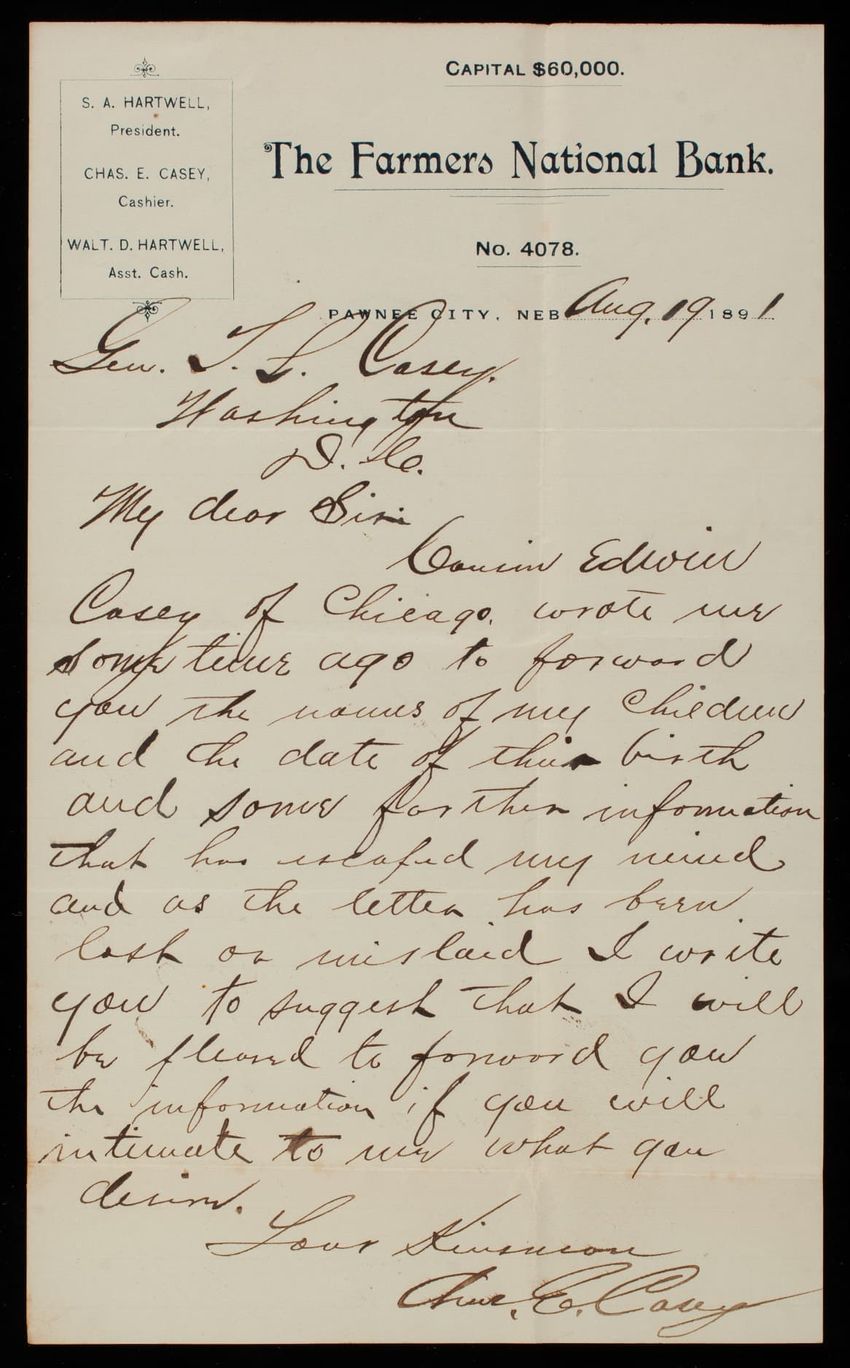 CAPITAL $60,000.
S. A. HARTWELL,
President.
CHAS. E. CASEY,
Cashier.
WALT. D. HARTWELL,
Asst. Cash.
The Farmers National Bank.
No. 4078.
PAWNEE CITY, NEB Aug. 19 1891.
Gen. T. L. Casey.
Washington
D. C.
My dear Sir:
Cousin Edwin
Casey of Chicago. wrote me
some time ago to forward
you the names of my Children
and the date of their birth
and some farther information
that has escaped my mind
and as the letter has been
lost or mislaid I write
you to suggest that I will
be pleased to forward you
the information if you will
intimate to me what you
desire.
Your Kinsman
Chas. E. Casey